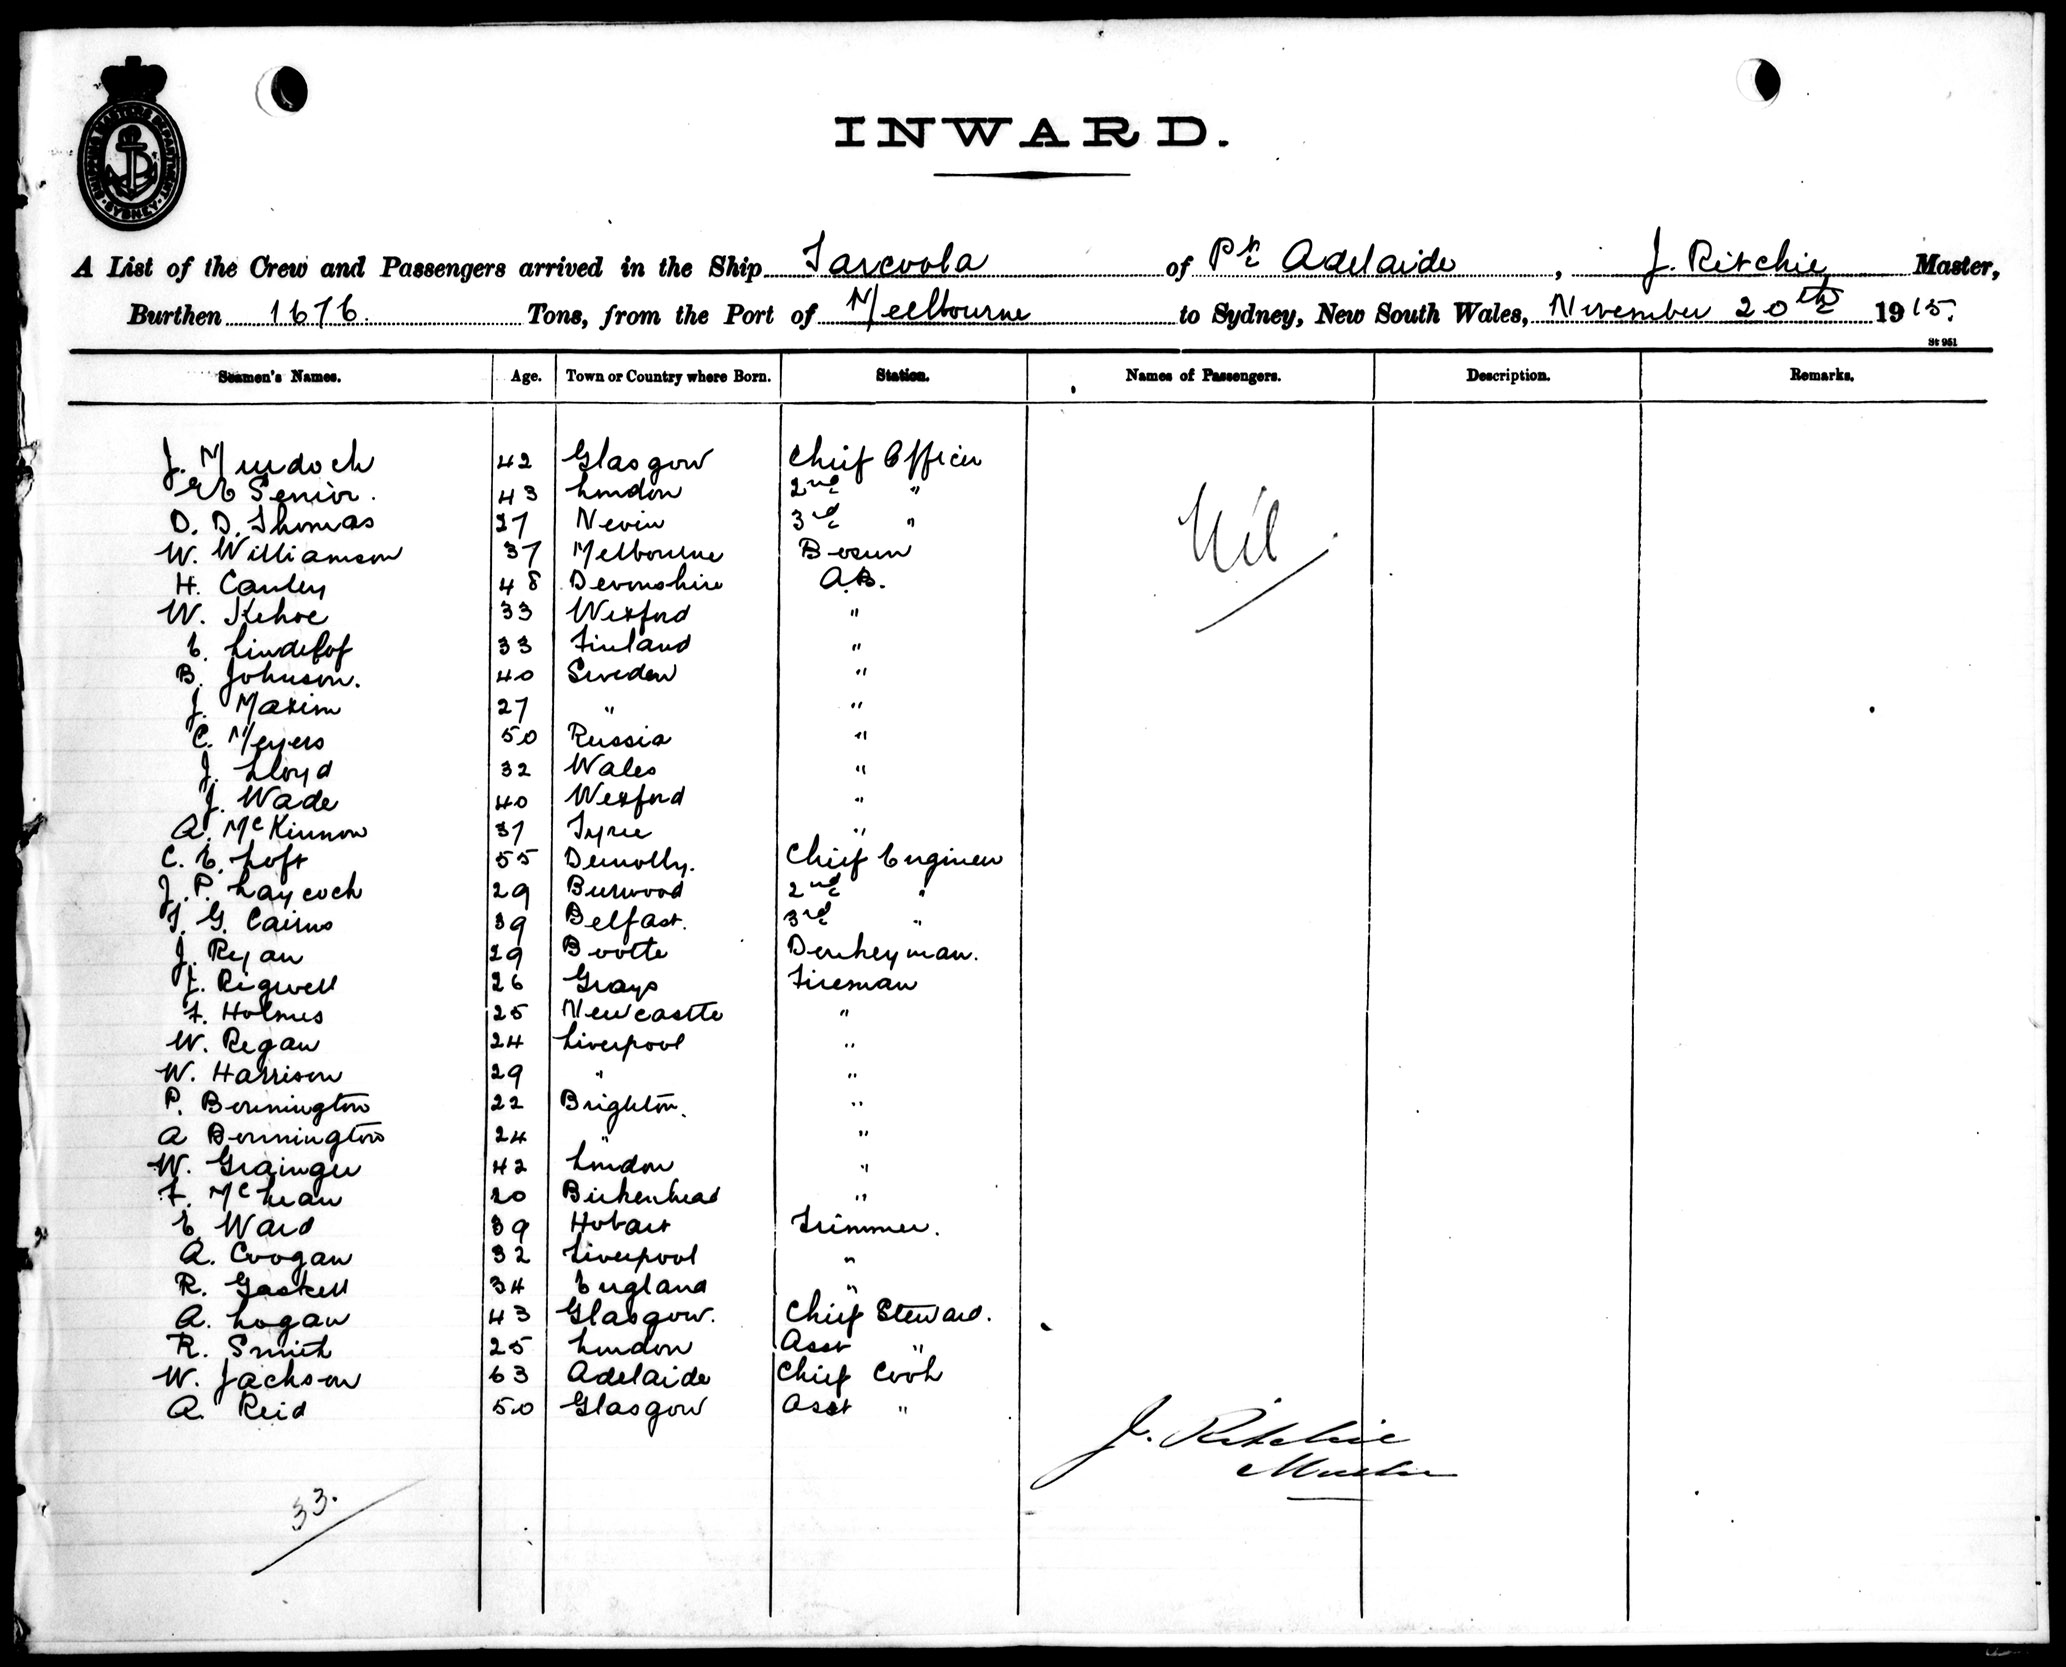 SHIPPING MASTERS DEPARTMENT · SYDNEY ·
INWARD.
A List of the Crew and Passengers arrived in the Ship Tarcoola of Pt Adelaide, J. Ritchie Master,
Burthen 1676. Tons, from the Port of Melbourne to Sydney, New South Wales, November 20th 1915.
St 951
Seamen's Names. Age. Town or Country where Born. Station. Names of Passengers. Description. Remarks.
J. Murdoch 42 Glasgow Chief Officer
Senior. 43 London 2nd "
D. D. Thomas 27 Nevin 3rd "
W. Williamson 37 Melbourne Bosun
Nil
H. Cauley 48 Devonshire A.B.
W. Kehoe 33 Wexford "
E. Lindelof 33 Finland "
B. Johnson. 40 Sweden "
J. Maxim 27 " "
C. Meyers 50 Russia "
J. Lloyd 32 Wales "
J. Wade 40 Wexford "
A. McKinnon 37 Tyree "
C. E. Loft 55 Chief Engineer
J. P. Laycock 29 Burwood 2nd "
T. G. Cairns 39 Belfast. 3rd "
J. Ryan 29 Bootle Donkeyman.
J. Rigwell 26 Grays Fireman
F. Holmes 25 Newcastle "
W. Regan 24 Liverpool "
W. Harrison 29 " "
P. Bonnington 22 Brighton. "
A Bonnington 24 " "
W. Grainger 42 London "
F. McLean 20 Birkenhead "
E. Ward 39 Hobart Trimmer.
A. Coogan 32 Liverpool "
R. Gaskell 34 England "
A. Logan 43 Glasgow. Chief Steward.
R. Smith 25 London Asst "
W. Jackson 63 Adelaide Chief Cook
A. Reid 50 Glasgow Asst "
J. Ritchie
Master
33.